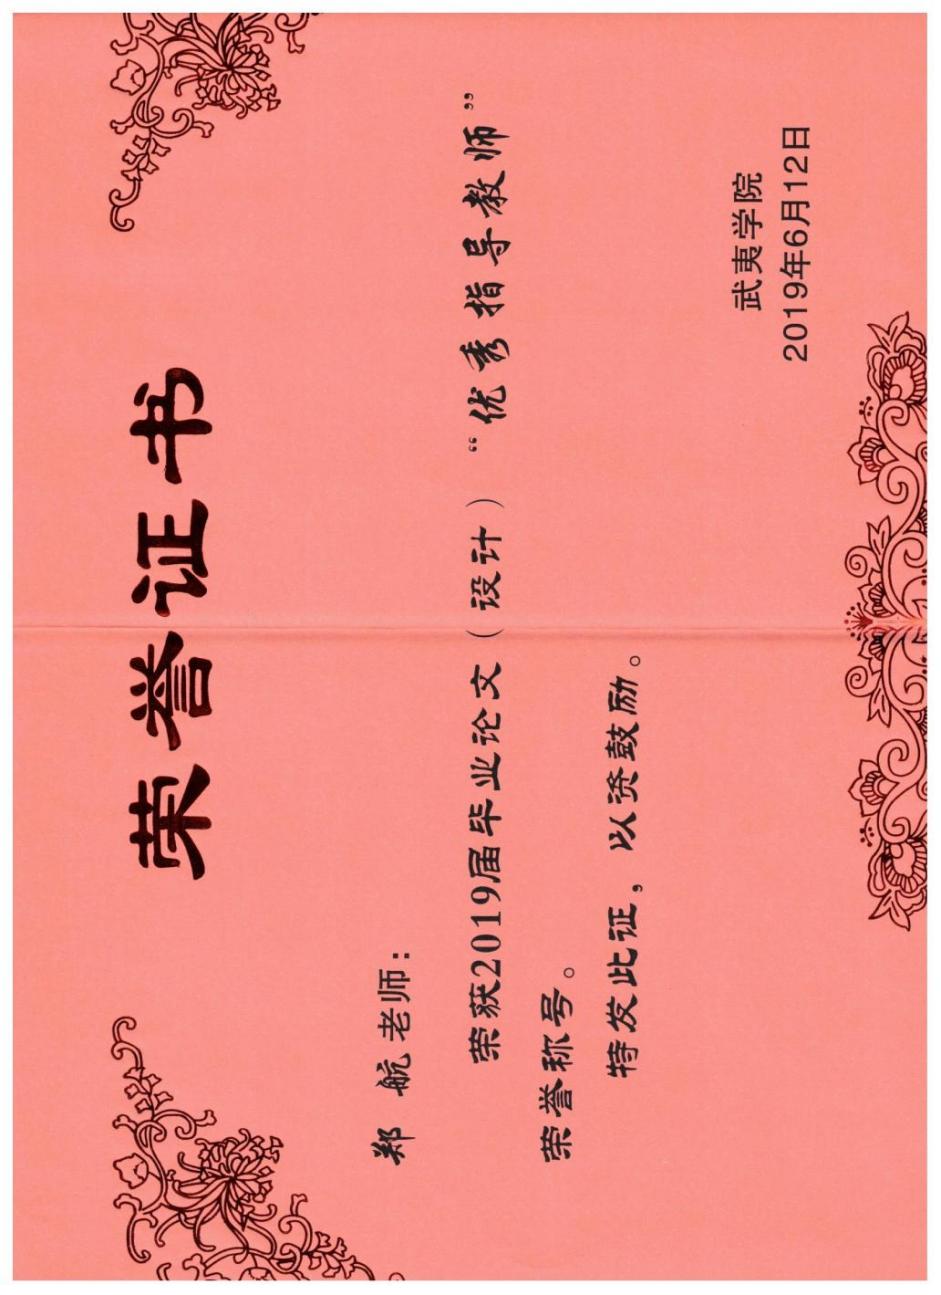 荣誉证书
郑 航老师：
荣获2019届毕业论文（设计）“优秀指导教师”
荣誉称号。
特发此证，以资鼓励。
武夷学院
2019年6月12日